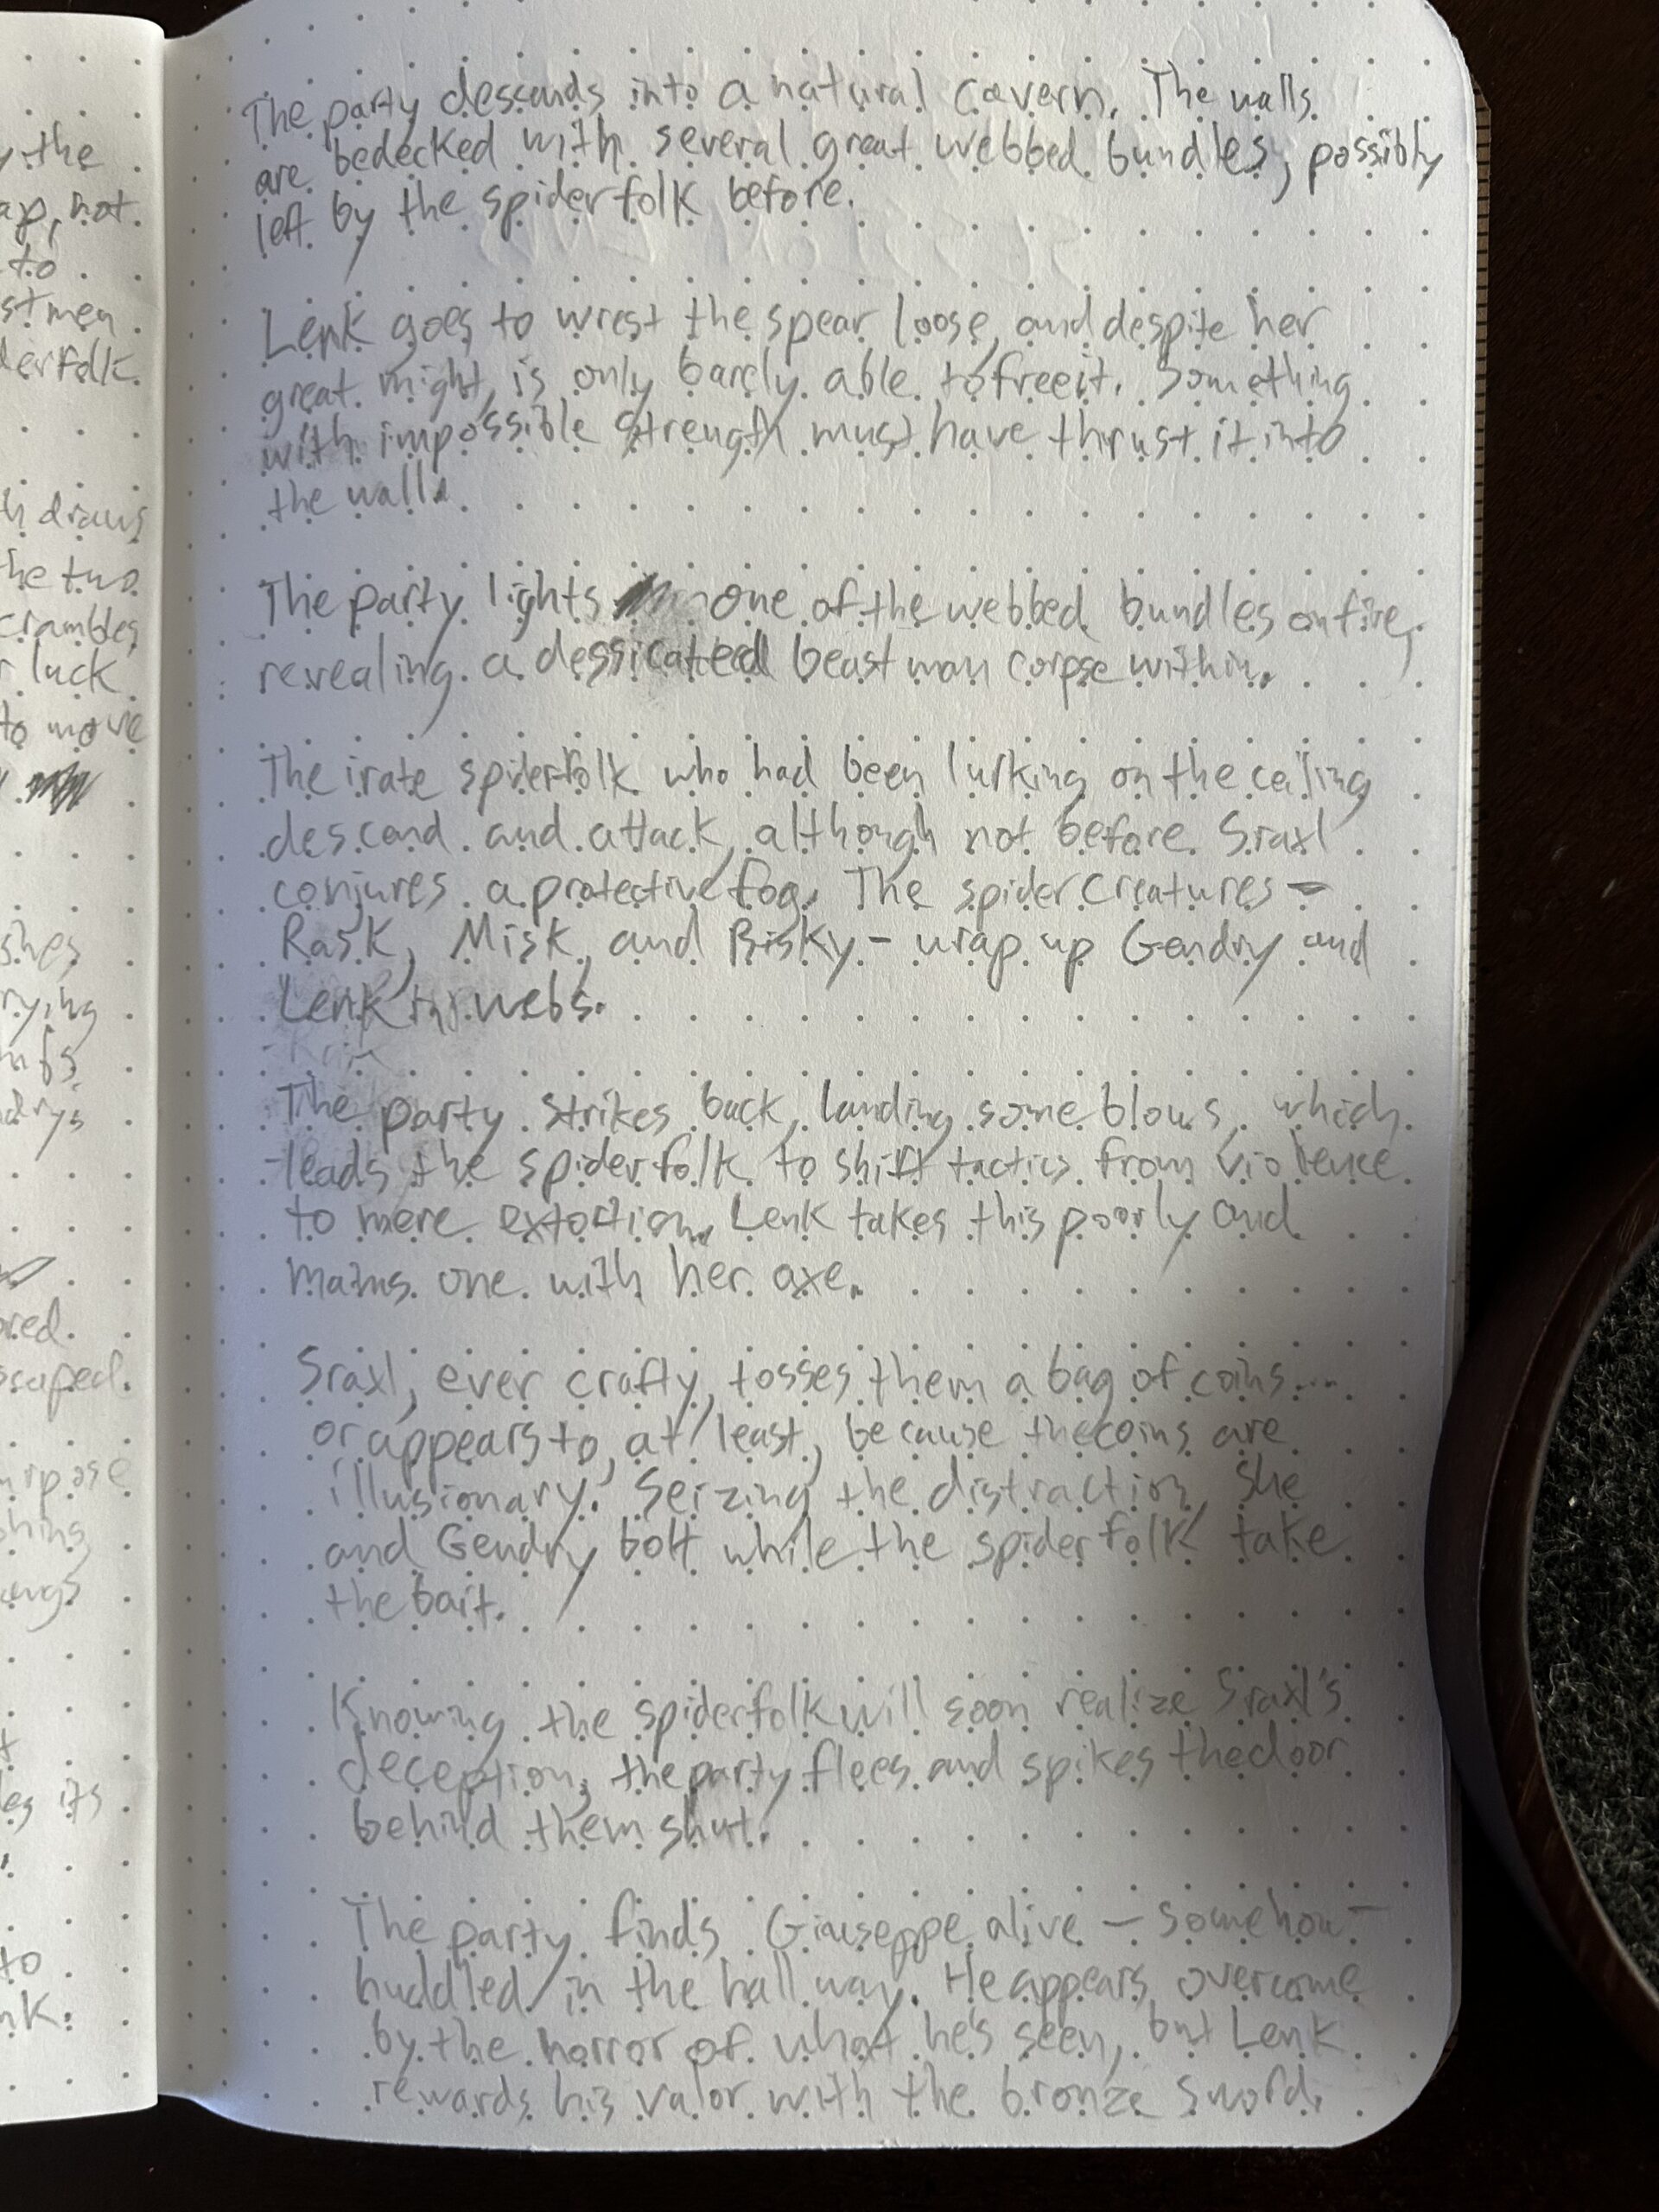 y the
ap, not
to
stmen
derfolk
h draws
the two
crambles
r luck
to move
shes
rying
mfs
dry's
ored.
scaped.
urpose
shing
ungs
es its
to
nk.
The party descends into a natural cavern. The walls
are bedecked with several great webbed bundles, possibly
left by the spiderfolk before.
Lenk goes to wrest the spear loose, and despite her
great might, is only barely able to free it. Something
with impossible strength must have thrust it into
the wall.
The party lights one of the webbed bundles on fire,
revealing a dessicated beastman corpse within.
The irate spiderfolk who had been lurking on the ceiling
descend and attack, although not before Sraxl
conjures a protective fog. The spider creatures -
Rask, Misk, and Bisky - wrap up Gendry and
Lenk in webs.
The party strikes back, landing some blows, which
leads the spiderfolk to shift tactics from violence
to mere extortion. Lenk takes this poorly and
maims one with her axe.
Sraxl, ever crafty, tosses them a bag of coins...
or appears to, at least, because the coins are
illusionary. Seizing the distraction, she
and Gendry bolt while the spiderfolk take
the bait.
Knowing the spiderfolk will soon realize Sraxl's
deception, the party flees and spikes the door
behind them shut.
The party finds Giuseppe alive - somehow -
huddled in the hallway. He appears overcome
by the horror of what he's seen, but Lenk
rewards his valor with the bronze sword.